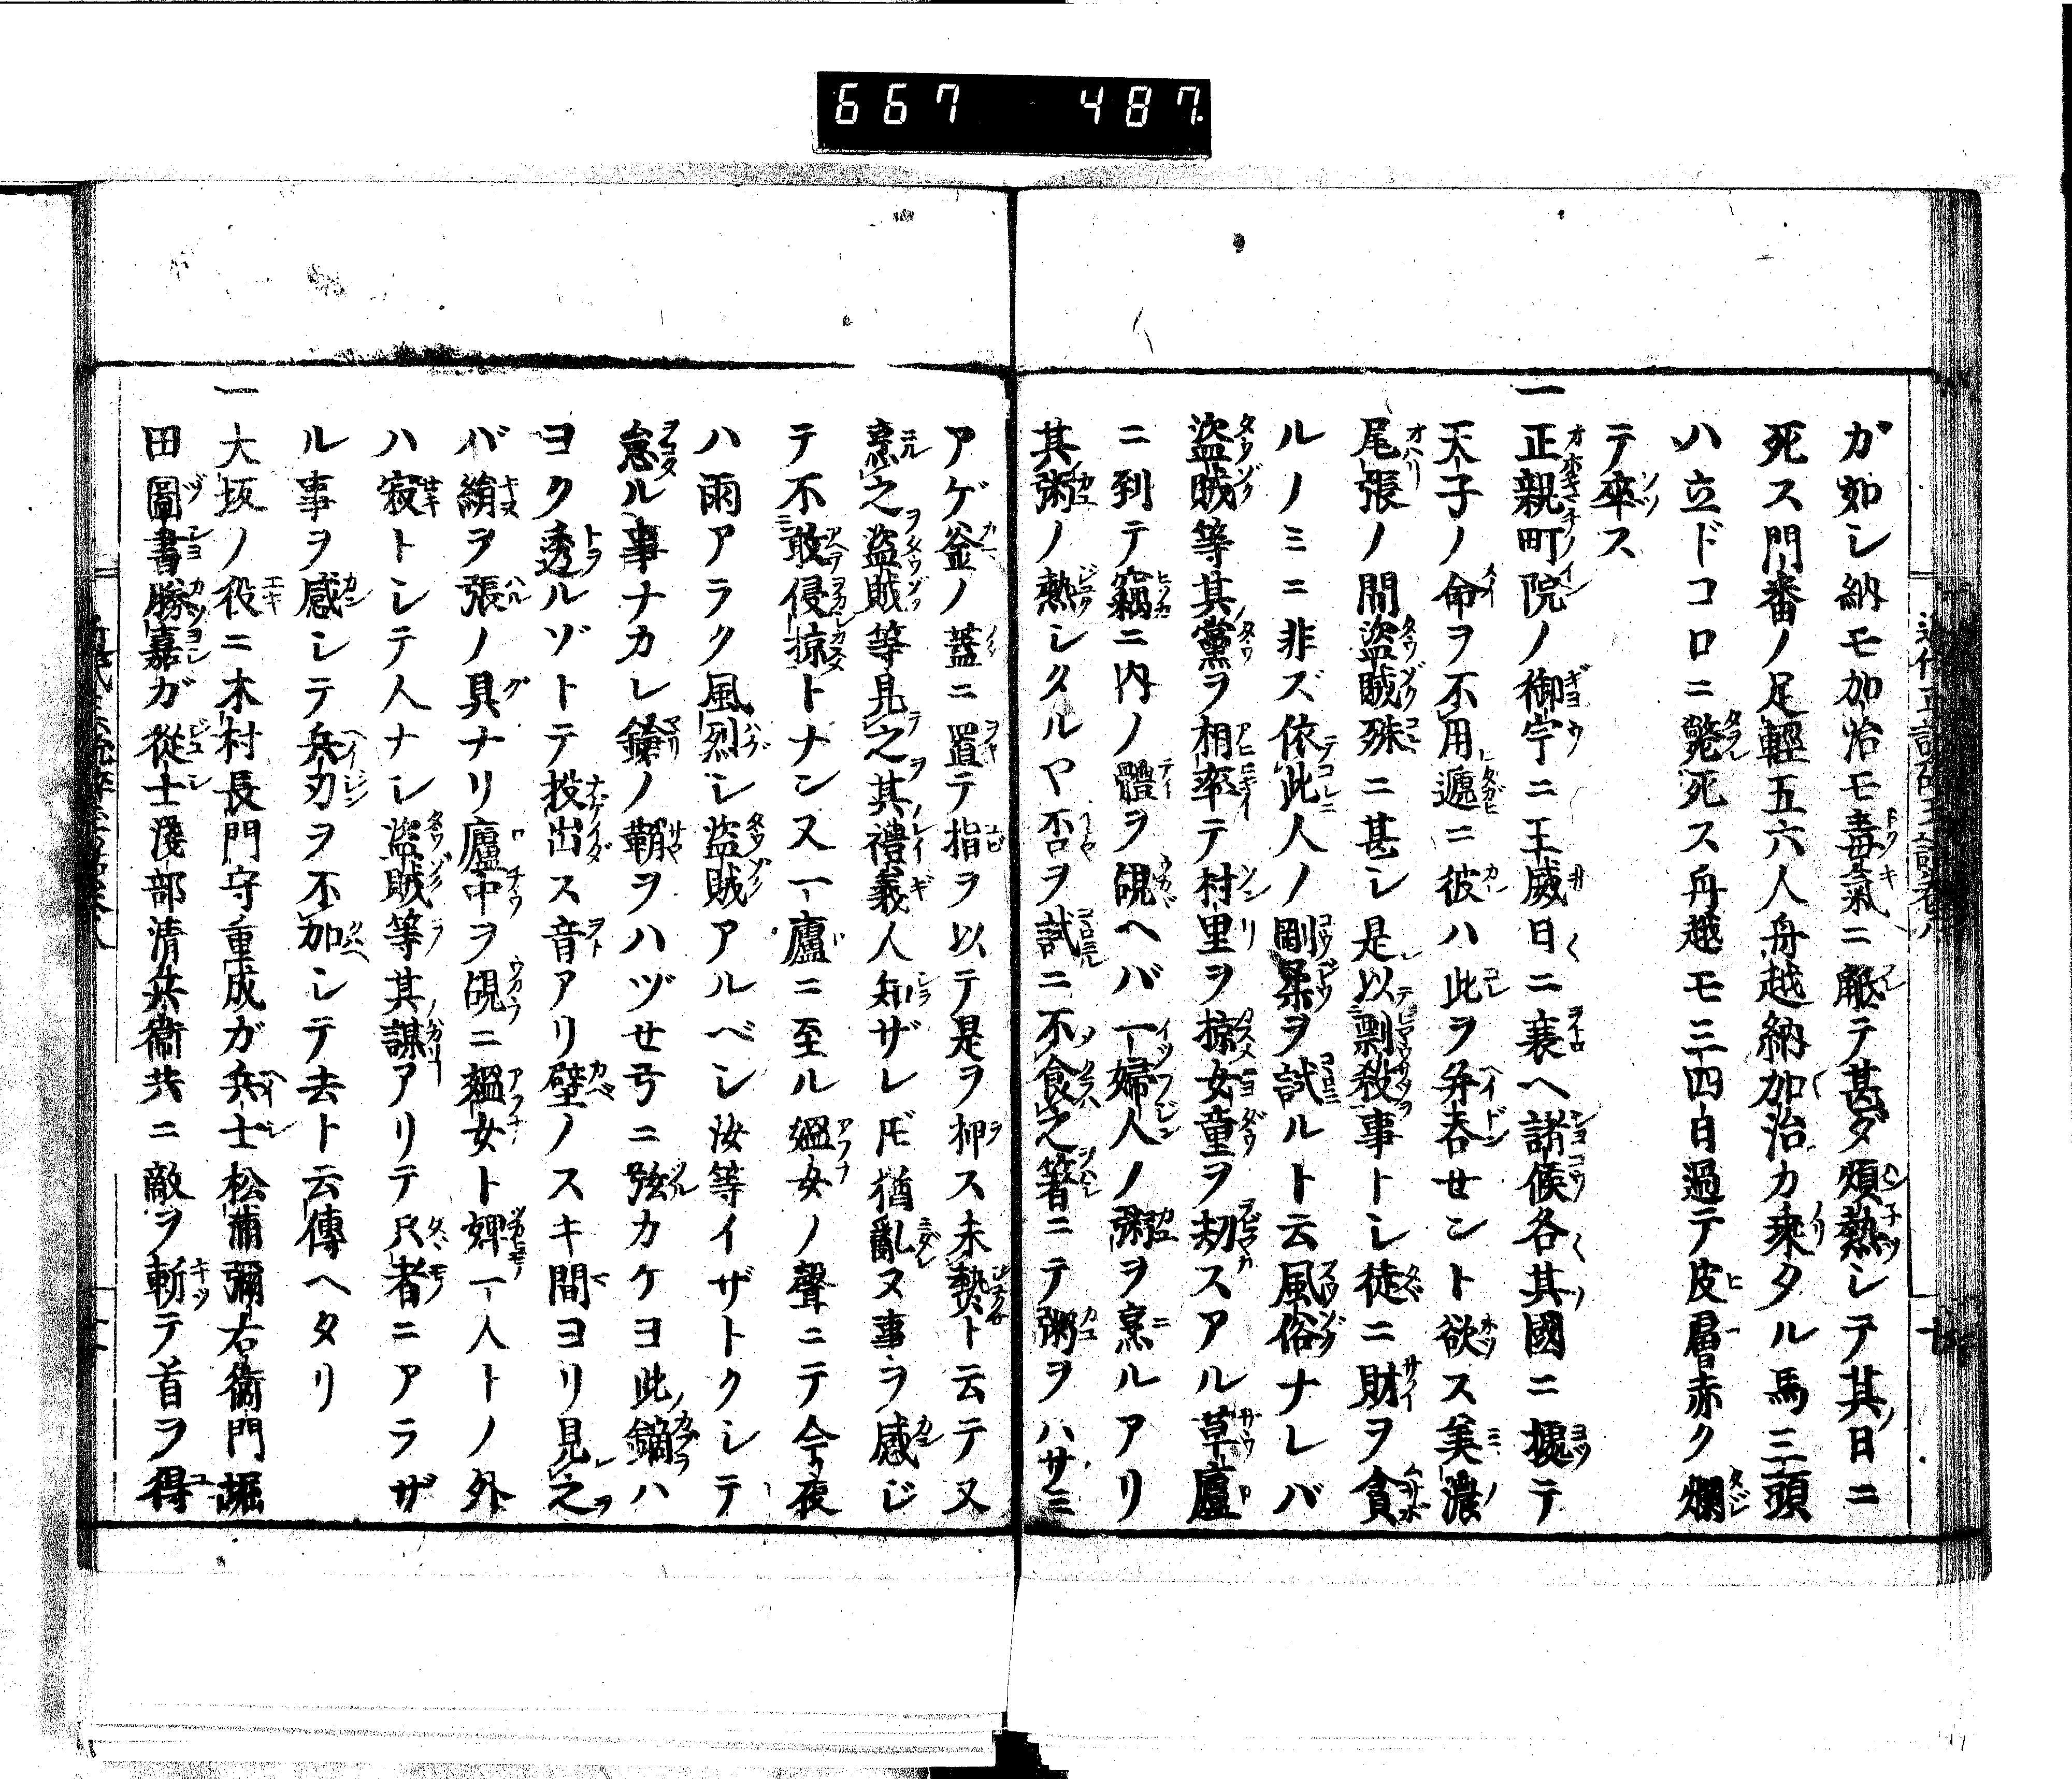 667 487
ガ如シ納モ加治モ毒氣ニ觝テ甚ダ煩熱シテ其日ニ
死ス門番ノ足輕五六人舟越納加治カ乘タル馬三頭
ハ立ドコロニ斃死ス舟越モ三四日過テ皮膚赤ク爛
テ卒ス
一正親町院ノ御宇ニ王威日ニ衰ヘ諸侯各其國ニ據テ
天子ノ命ヲ不用遞ニ彼ハ此ヲ并呑セント欲ス美濃
尾張ノ間盜賊殊ニ甚シ是以剽殺事トシ徒ニ財ヲ貪
ルノミニ非ズ依此人ノ剛柔ヲ試ルト云風俗ナレバ
盜賊等其黨ヲ相率テ村里ヲ掠女童ヲ刼スアル草廬
ニ到テ竊ニ内ノ體ヲ覘ヘバ一婦人ノ粥ヲ烹ルアリ
其粥ノ熟シタルヤ否ヲ試ニ不食之箸ニテ粥ヲハサミ
アゲ釜ノ蓋ニ置テ指ヲ以テ是ヲ押ス未熟ト云テ又
烹之盜賊等見之其禮義人知ザレ𪜈猶亂ヌ事ヲ感ジ
テ不敢侵掠トナン又一廬ニ至ル媼女ノ聲ニテ今夜
ハ雨アラク風烈シ盜賊アルベシ汝等イザトクシテ
怠ル事ナカレ鎗ノ鞘ヲハヅせ弓ニ弦カケヨ此鏑ハ
ヨク透ルゾトテ投出ス音アリ壁ノスキ間ヨリ見之
バ絹ヲ張ノ具ナリ廬中ヲ覘ニ媼女ト婢一人トノ外
ハ寂トシテ人ナシ盜賊等其謀アリテ只者ニアラザ
ル事ヲ感シテ兵刃ヲ不加シテ去ト云傳ヘタリ
一大坂ノ役ニ木村長門守重成ガ兵士松浦彌右衞門堀
田圖書勝嘉ガ從士淺部清兵衞共ニ敵ヲ斬テ首ヲ得